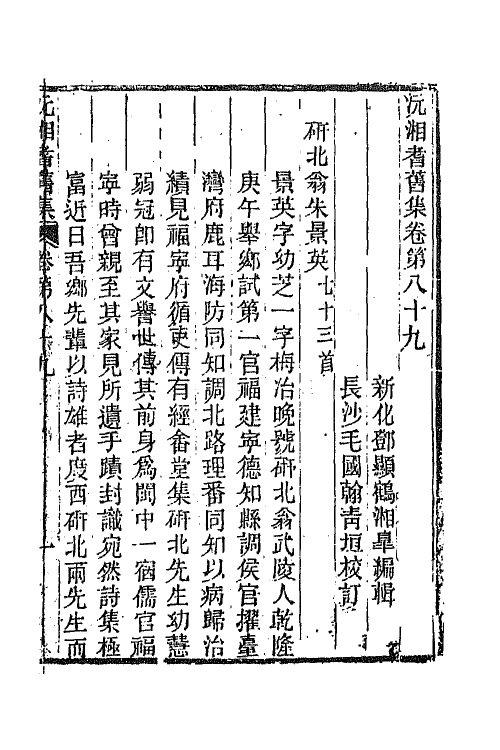 沅湘耆舊集卷第八十九
新化鄧顯鶴湘臯編輯
長沙毛國翰青垣校訂
硏北翁朱景英七十三首
景英字幼芝一字梅冶晚號硏北翁武陵人乾隆
庚午舉鄉試第一官福建寧德知縣調侯官擢臺
灣府鹿耳海防同知調北路理番同知以病歸治
績見福寧府循吏傳有經畬堂集硏北先生幼慧
弱冠卽有文譽世傳其前身爲閩中一宿儒官福
寧時曾親至其家見所遺手蹟封識宛然詩集極
富近日吾鄉先輩以詩雄者度西硏北兩先生而
沅湘耆舊集 卷第八十九 一